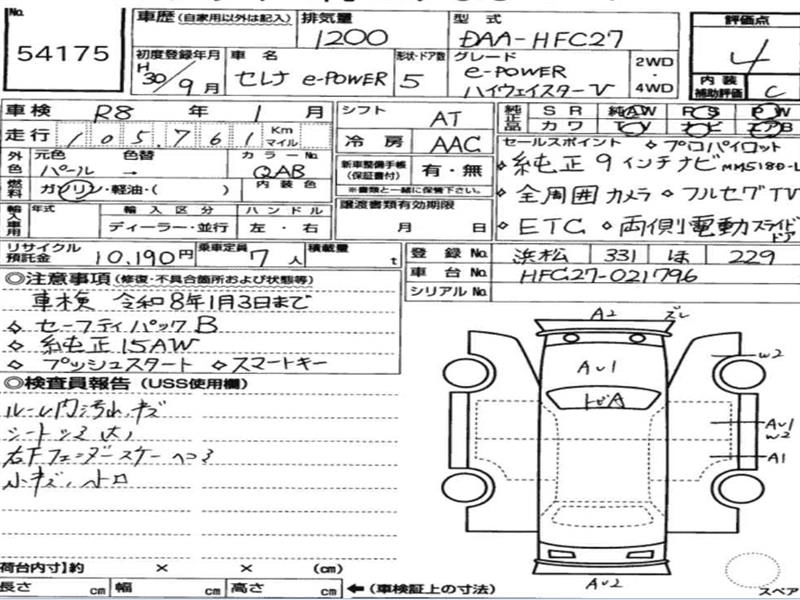 No. 54175
車歴 (自家用以外は記入)
排気量 1200
型式 DAA-HFC27
評価点 4
内装補助評価 C
初度登録年月 H30/9月
車名 セレナ e-POWER
形状・ドア数 5
グレード e-POWER ハイウェイスターV
2WD・4WD
車検 R8年1月
走行 105,761 Km マイル
シフト AT
冷房 AAC
純正品 SR 純AW RS PW
カワ TV ナビ エアB
外色 元色 パール 色替 →
カラーNo. QAB
内装色
燃料 ガソリン・軽油・( )
新車整備手帳(保証書付) 有・無
※書類と一緒に保管下さい。
セールスポイント ◇プロパイロット
◇純正9インチナビ MM518D-L
◇全周囲カメラ ◇フルセグTV
◇ETC ◇両側電動スライドドア
輸入車用 年式 輸入区分 ディーラー・並行 ハンドル 左・右
譲渡書類有効期限 月 日
リサイクル預託金 10,190円
乗車定員 7人
積載量 t
登録No. 浜松 331 ほ 229
車台No. HFC27-021796
シリアルNo.
◎注意事項(修復・不具合箇所および状態等)
車検 令和8年1月3日まで
◇セーフティパックB
◇純正15AW
◇プッシュスタート ◇スマートキー
◎検査員報告(USS使用欄)
ルーム内汚れ、キズ
シート
右Fフェンダー
小キズ、
A2 ズレ
AU1
トビA
W2
AU1
W2
A1
AU2
荷台内寸】約 × × (cm)
長さ cm 幅 cm 高さ cm ←(車検証上の寸法)
スペア